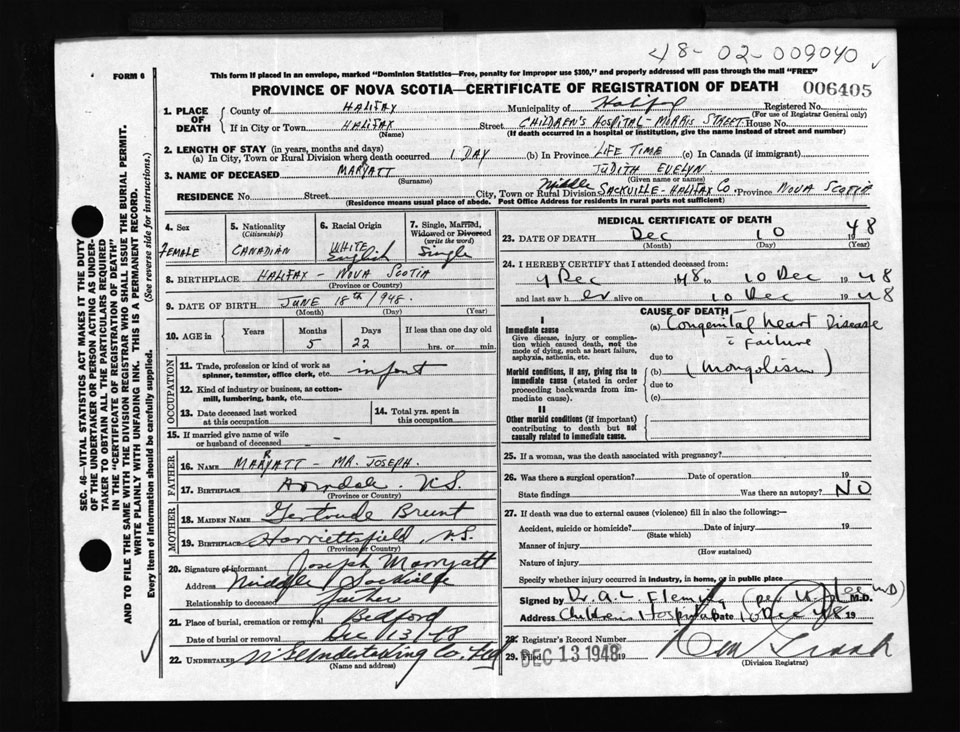 48-02-009040
FORM 6
This form if placed in an envelope, marked "Dominion Statistics—Free, penalty for improper use $300," and properly addressed will pass through the mail "FREE"
PROVINCE OF NOVA SCOTIA—CERTIFICATE OF REGISTRATION OF DEATH 006405
1. PLACE OF DEATH
County of HALIFAX Municipality of Halifax Registered No.
(For use of Registrar General only)
If in City or Town HALIFAX Street CHILDREN'S HOSPITAL - MORRIS STREET House No.
(Name) (If death occurred in a hospital or institution, give the name instead of street and number)
2. LENGTH OF STAY (in years, months and days)
(a) In City, Town or Rural Division where death occurred 1 DAY (b) In Province LIFE TIME (c) In Canada (if immigrant)
3. NAME OF DECEASED MARRYATT JUDITH EVELYN
(Surname) (Given name or names)
RESIDENCE No. Street City, Town or Rural Division Middle SACKVILLE - HALIFAX Co Province NOVA SCOTIA
(Residence means usual place of abode. Post Office Address for residents in rural parts not sufficient)
4. Sex
FEMALE
5. Nationality
(Citizenship)
CANADIAN
6. Racial Origin
WHITE
English
7. Single, Married, Widowed or Divorced
(write the word)
Single
8. BIRTHPLACE HALIFAX - NOVA SCOTIA
(Province or Country)
9. DATE OF BIRTH JUNE 18th 1948
(Month) (Day) (Year)
10. AGE in
Years Months Days If less than one day old
5 22 hrs. or min.
OCCUPATION
11. Trade, profession or kind of work as
spinner, teamster, office clerk, etc. infant
12. Kind of industry or business, as cotton-
mill, lumbering, bank, etc.
13. Date deceased last worked
at this occupation
14. Total yrs. spent in
this occupation
15. If married give name of wife
or husband of deceased
FATHER
16. NAME MARRYATT - MR. JOSEPH.
17. BIRTHPLACE N.S.
(Province or Country)
MOTHER
18. MAIDEN NAME Gertrude Brunt
19. BIRTHPLACE Harrietsfield, N.S.
(Province or Country)
20. Signature of informant Joseph Marryatt
Address Middle Sackville
Relationship to deceased father
21. Place of burial, cremation or removal Bedford
Date of burial or removal Dec 13/48
22. UNDERTAKER N.S. Undertaking Co. Ltd
(Name and address)
MEDICAL CERTIFICATE OF DEATH
23. DATE OF DEATH Dec 10 1948
(Month) (Day) (Year)
24. I HEREBY CERTIFY that I attended deceased from:
9 Dec 1948 to 10 Dec 1948
and last saw her alive on 10 Dec 1948
CAUSE OF DEATH
I
Immediate cause
Give disease, injury or complica-
tion which caused death, not the
mode of dying, such as heart failure,
asphyxia, asthenia, etc.
(a) Congenital heart Disease
c failure
due to
Morbid conditions, if any, giving rise to
immediate cause (stated in order
proceeding backwards from im-
mediate cause).
(b) (Mongolism)
due to
(c)
II
Other morbid conditions (if important)
contributing to death but not
causally related to immediate cause.
25. If a woman, was the death associated with pregnancy?
26. Was there a surgical operation? Date of operation 19
State findings Was there an autopsy? NO
27. If death was due to external causes (violence) fill in also the following:—
Accident, suicide or homicide? Date of injury 19
(State which)
Manner of injury
(How sustained)
Nature of injury
Specify whether injury occurred in industry, in home, or in public place
Signed by Dr. A.L. Fleming M.D.
Address Children Hospital Date 10 Dec 48 19
28. Registrar's Record Number
29. Filed DEC 13 1948 19
(Division Registrar)
SEC. 46—VITAL STATISTICS ACT MAKES IT THE DUTY
OF THE UNDERTAKER OR PERSON ACTING AS UNDER-
TAKER TO OBTAIN ALL THE PARTICULARS REQUIRED
IN THE "CERTIFICATE OF REGISTRATION OF DEATH"
AND TO FILE THE SAME WITH THE DIVISION REGISTRAR WHO SHALL ISSUE THE BURIAL PERMIT.
WRITE PLAINLY WITH UNFADING INK. THIS IS A PERMANENT RECORD.
Every item of information should be carefully supplied. (See reverse side for instructions.)